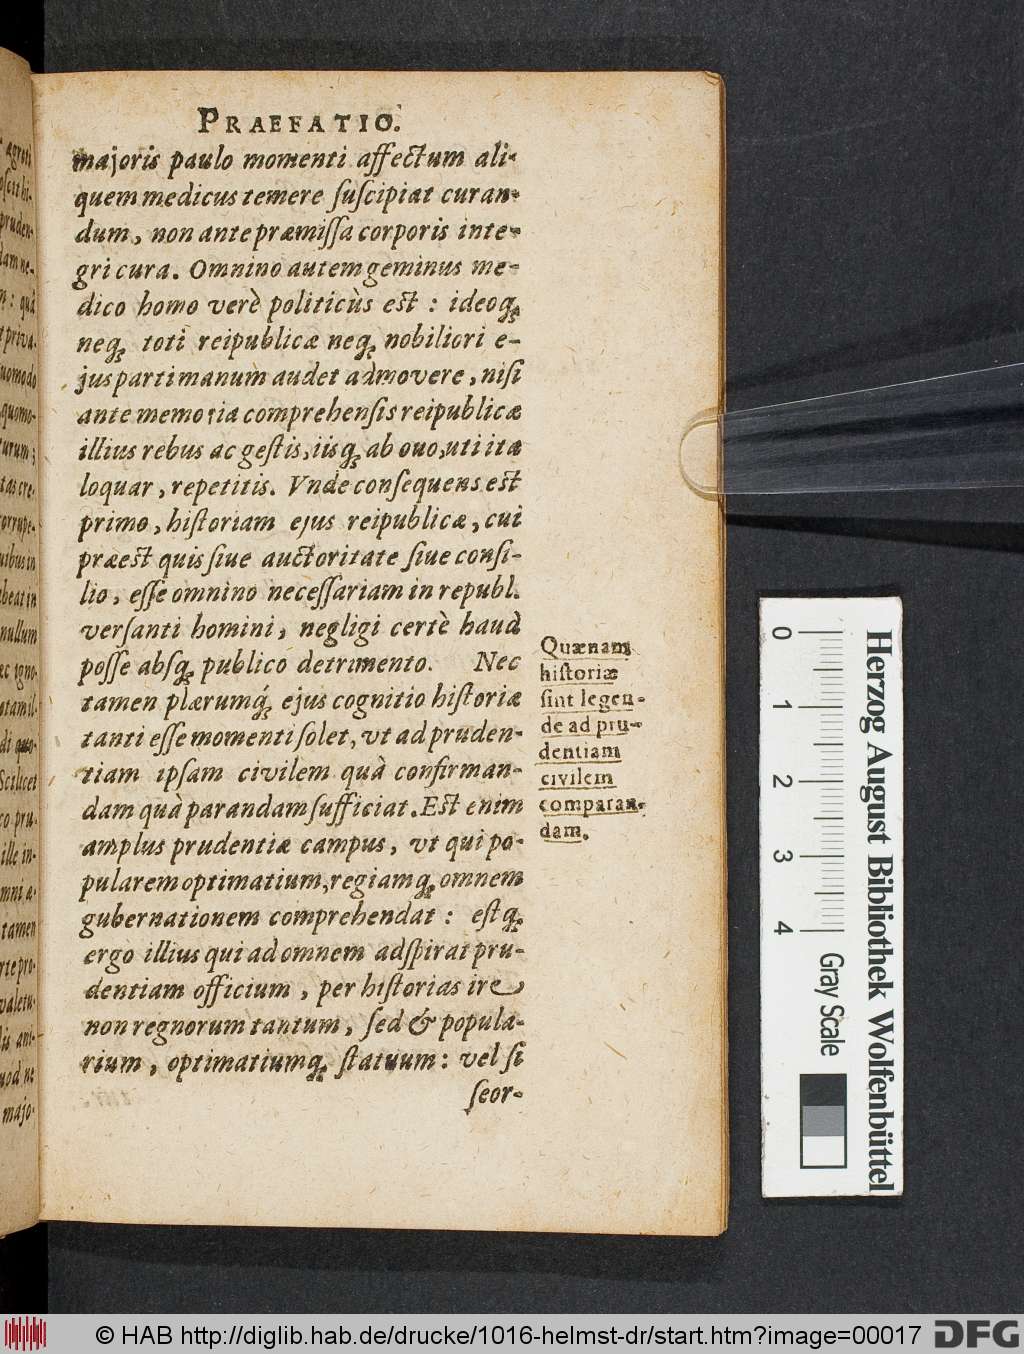 PRAEFATIO.
majoris paulo momenti affectum ali-
quem medicus temere ſuſcipiat curan-
dum, non ante præmiſſa corporis inte-
gri cura. Omnino autem geminus me-
dico homo verè politicùs est : ideoq;
neq; toti reipublicæ neq; nobiliori e-
jus parti manum audet admovere, niſi
ante memoria comprehenſis reipublicæ
illius rebus ac geſtis, iisq; ab ouo, uti ita
loquar, repetitis. Vnde conſequens est
primo, hiſtoriam ejus reipublicæ, cui
præest quis ſiue auctoritate ſiue conſi-
lio, eſſe omnino neceſſariam in republ.
verſanti homini, negligi certè haud
poſſe absq; publico detrimento. Nec
tamen plærumq́; ejus cognitio hiſtoriæ
tanti eſſe momenti ſolet, vt ad pruden-
tiam ipſam civilem quà confirman-
dam quà parandam ſufficiat. Est enim
amplus prudentiæ campus, vt qui po-
pularem optimatium, regiamq; omnem
gubernationem comprehendat : eſtq;
ergo illius qui ad omnem adſpirat pru-
dentiam officium, per hiſtorias ire,
non regnorum tantum, ſed & popula-
rium, optimatiumq; ſtatuum : vel ſi
ſeor-
Quænam
hiſtoriæ
ſint legen-
de ad pru-
dentiam
civilem
comparan-
dam.
0 1 2 3 4
Gray Scale
Herzog August Bibliothek Wolfenbüttel
© HAB http://diglib.hab.de/drucke/1016-helmst-dr/start.htm?image=00017
DFG